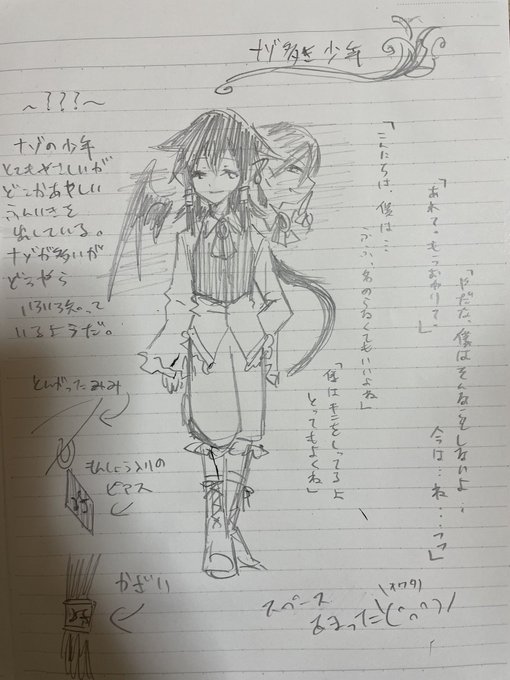 ナゾ多き少年
～???～
ナゾの少年
とてもやさしいが
どこかあやしい
ふんいきを
出している。
ナゾが多いが
どうやら
いろいろ知って
いるようだ。
「やだな、僕はそんなことしないよ…
今は…ね…フフ」
「あれ?もうおわり?」
「こんにちは、僕は…
ふふ、名のらなくてもいいよね」
「僕はキミをしってるよ
とってもよくね」
とんがったみみ
もんしょう入りの
ピアス
かざり
スペース
あまった